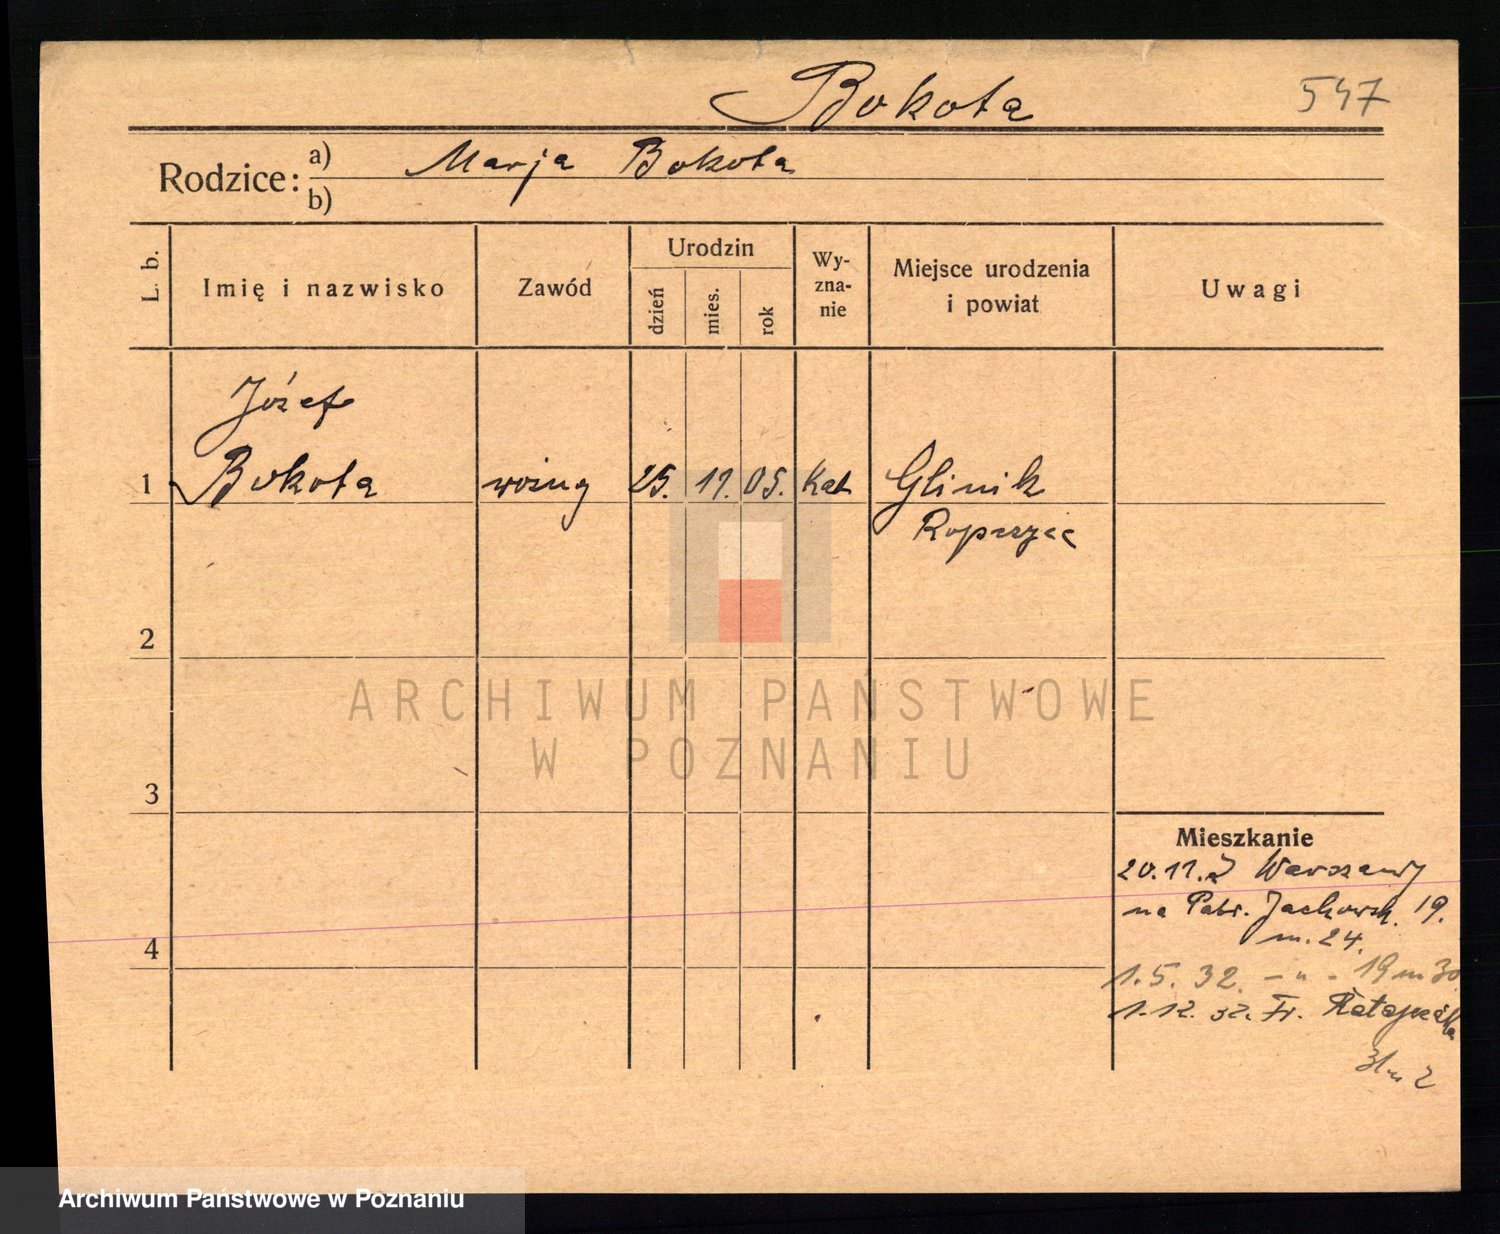 Bokota 547
Rodzice: a) Marja Bokota
b)
L. b. Imię i nazwisko Zawód Urodzin dzień mies. rok Wy-zna-nie Miejsce urodzenia i powiat Uwagi
Józef
1 Bokota woźny 25. 11. 05. Kat Glinik
Ropczyce
2
ARCHIWUM PAŃSTWOWE
W POZNANIU
3
Mieszkanie
20.11. z Warszawy
na Patr. Jackowsk. 19.
m. 24.
4
1.5. 32. – " - 19 m 30
1.12. 32. Fr. Ratajczaka
31 m 2
Archiwum Państwowe w Poznaniu